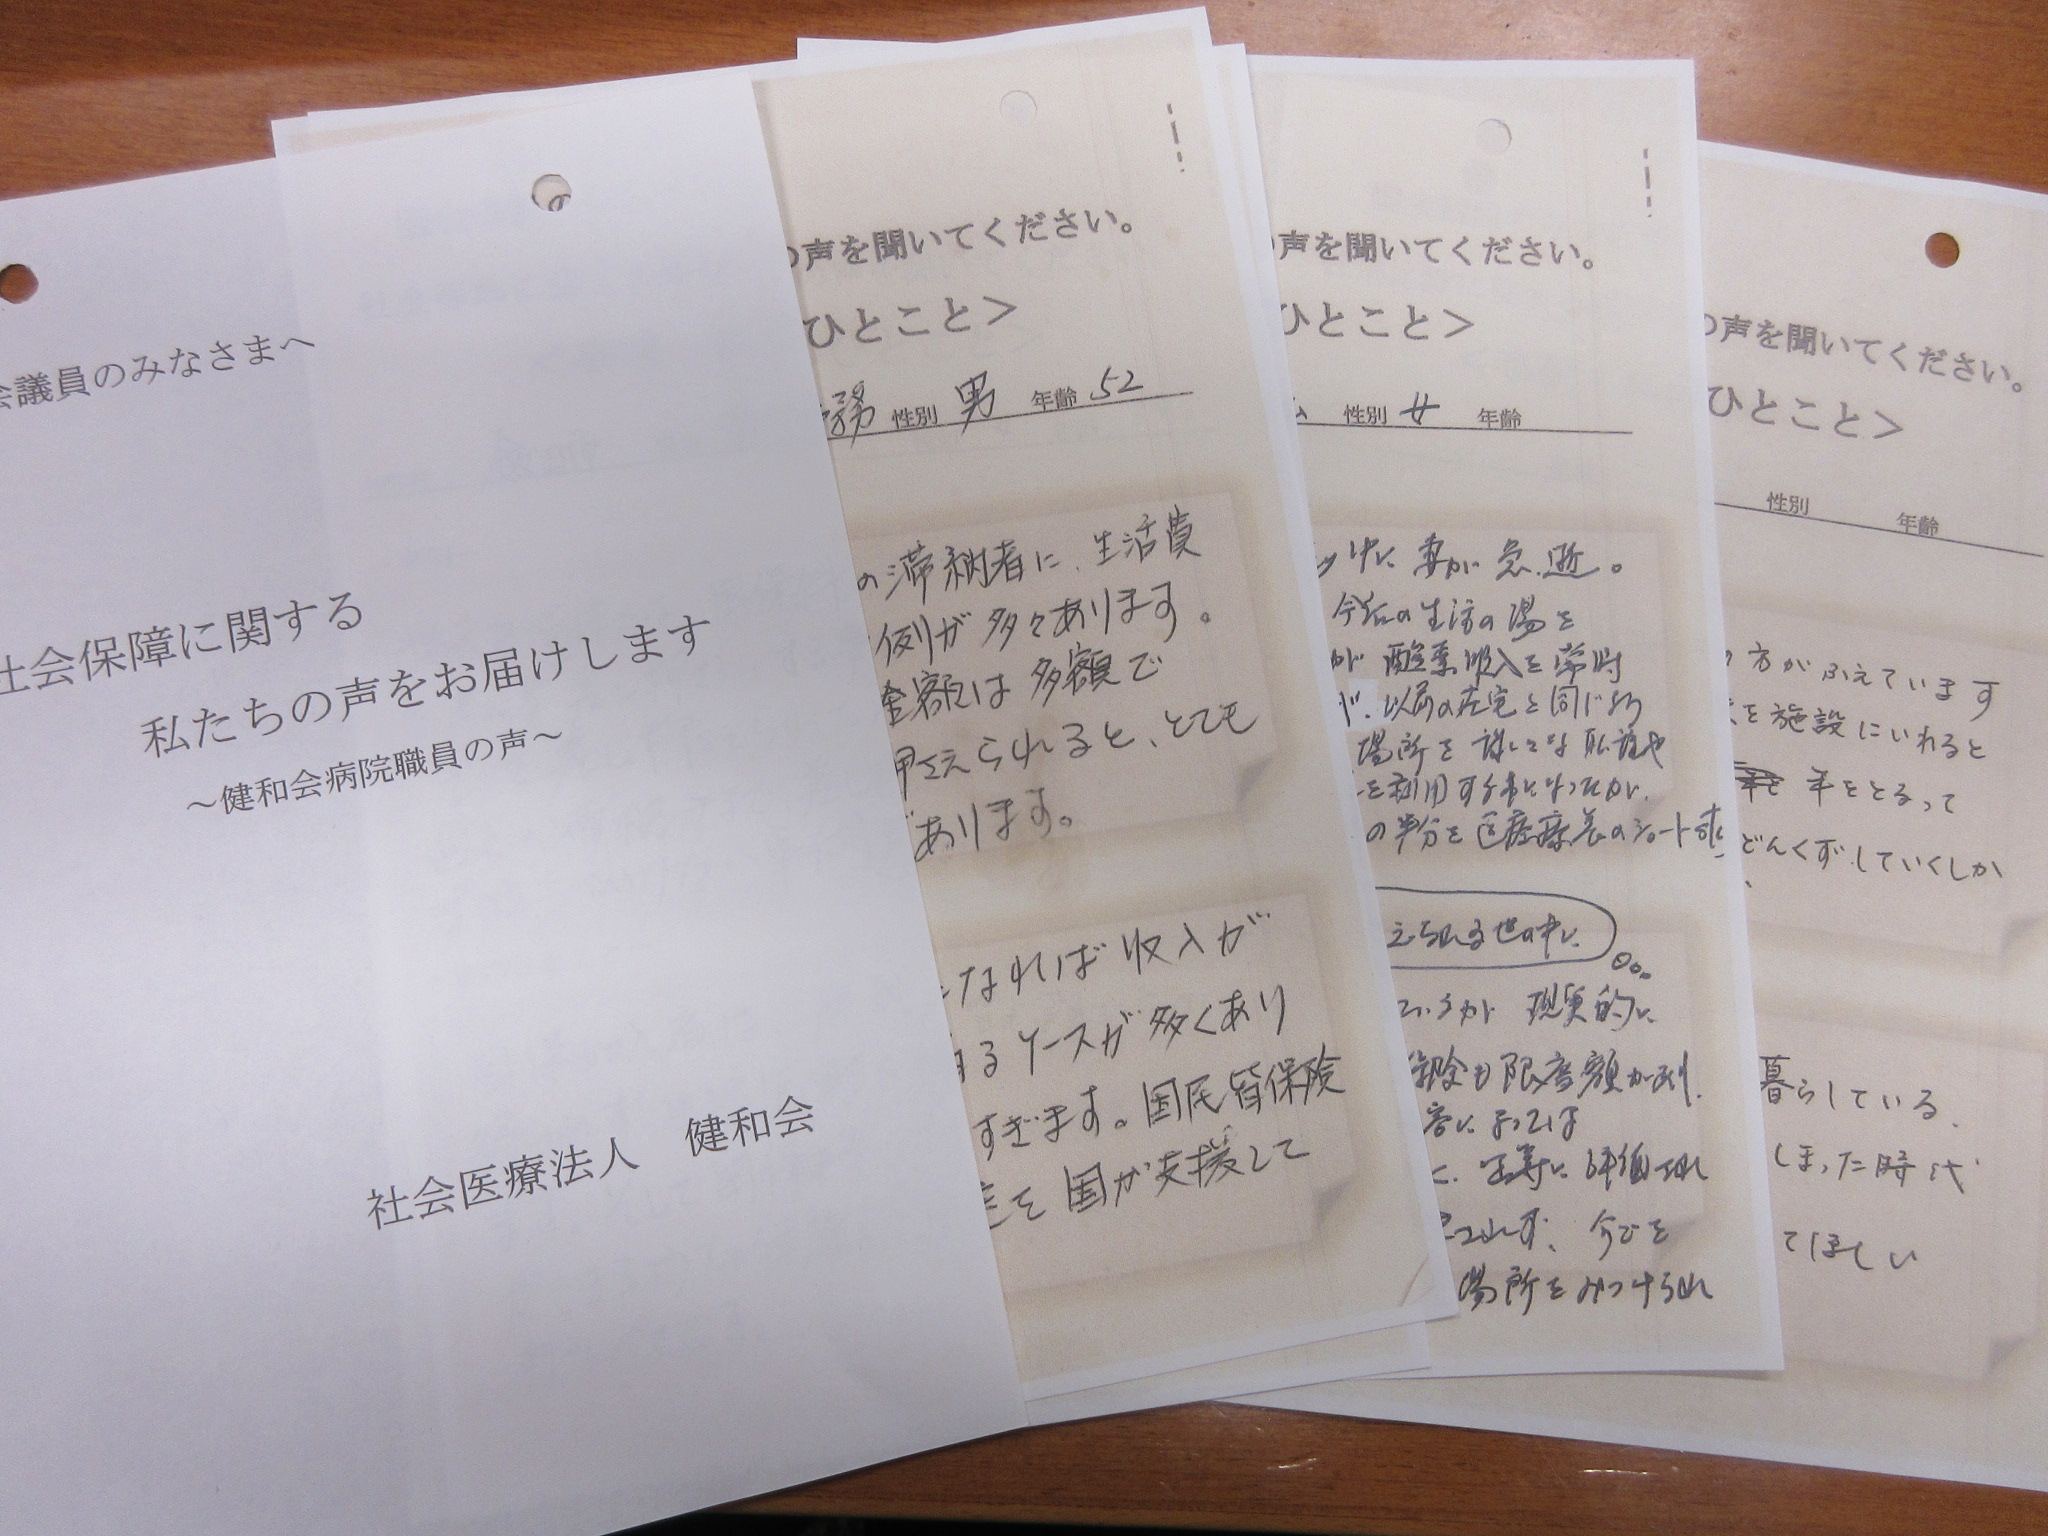 会議員のみなさまへ
社会保障に関する
私たちの声をお届けします
～健和会病院職員の声～
社会医療法人　健和会
の声を聞いてください。
ひとこと＞
務 性別 男 年齢 52
の滞納者に、生活費
例が多々あります。
金額は多額で
押さえられると、とても
があります。
なれば収入が
るケースが多くあり
すぎます。国民皆保険
を国が支援して
の声を聞いてください。
ひとこと＞
性別 女 年齢
妻が急逝。
今後の生活の場を
が酸素吸入を常時
以前の在宅と同じ様
場所を
を利用する事になったが、
の半分を医療療養のショート
えられる世の中に
現実的に
保険も限度額があり
よっては
場所をみつけられ
の声を聞いてください。
ひとこと＞
性別 年齢
方がふえています
を施設にいれると
年をとるって
どんくずしていくしか
暮らしている。
しまった時代
てほしい